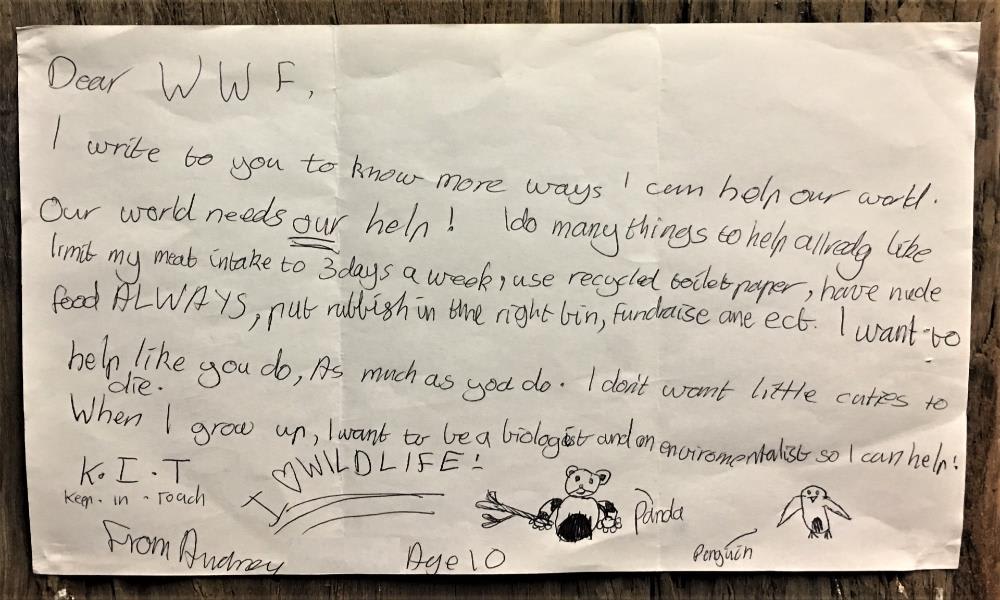 Dear WWF,
I write to you to know more ways I can help our world.
Our world needs our help! I do many things to help allredy like
limit my meat intake to 3 days a week, use recycled toilet paper, have nude
food ALWAYS, put rubbish in the right bin, fundraise and ect. I want to
help like you do, As much as you do. I don't want little cuties to
die.
When I grow up, I want to be a biologist and an enviromentalist so I can help!
K.I.T
Keep. in. Touch
I ♡ WILDLIFE!
Panda
Penguin
From Audrey
Age 10